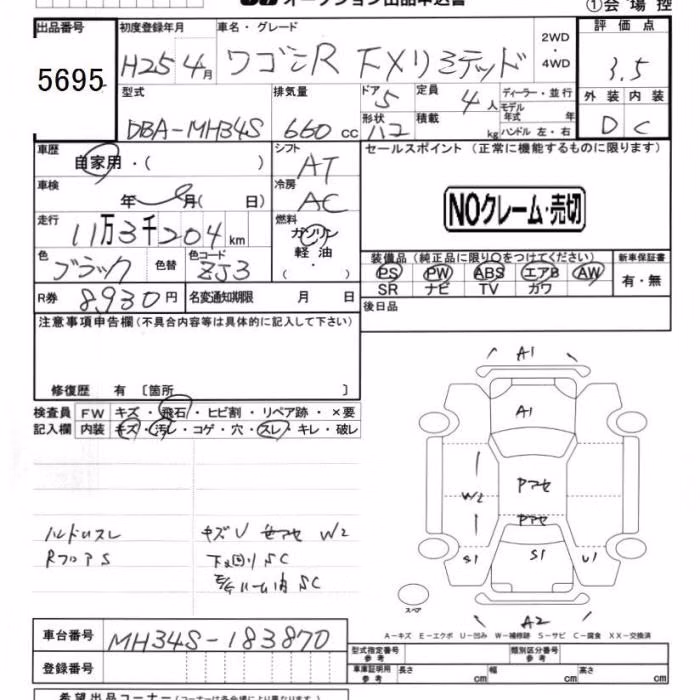 オークション出品申込書
①会場控
出品番号 初度登録年月 車名・グレード 2WD・4WD 評価点
5695 H25 4月 ワゴンR FXリミテッド 3.5
型式 排気量 ドア 5 定員 4人 ディーラー・並行 外装 内装
モデル年式 年
DBA-MH34S 660cc 形状 積載 kg ハンドル 左・右 D C
車歴 シフト セールスポイント (正常に機能するものに限ります)
自家用・( ) AT
車検 冷房
年 月( 日) AC
NOクレーム・売切
走行 燃料
11万3千204km ガソリン
軽油
( ・ )
色 色替 色コード 装備品 (純正品に限り○をつけてください) 新車保証書
ブラック ZJ3 PS PW ABS エアB AW 有・無
SR ナビ TV カワ
R券 8,930円 名変通知期限 月 日 後日品
注意事項申告欄(不具合内容等は具体的に記入して下さい)
修復歴 有 〔箇所 〕
検査員 FW キズ・飛石・ヒビ割・リペア跡・×要
記入欄 内装 キズ・汚レ・コゲ・穴・スレ・キレ・破レ
A1
A1
W2
Pアセ
Pアセ
S1 S1 U1
ハンドルスレ キズU W2
RフロアS 下廻りSC
SC
スペア
A2
A-キズ E-エクボ U-凹み W-補修跡 S-サビ C-腐食 XX-交換済
車台番号 MH34S-183870
登録番号
型式指定番号 参考 類別区分番号 参考
車庫証明用 参考 長さ cm 幅 cm 高さ cm
希望出品コーナー